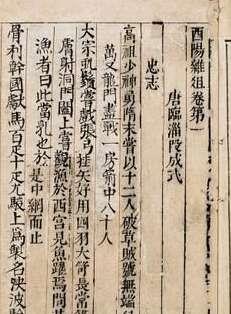 酉陽雜俎卷第一
唐臨淄段成式
忠志
高祖少神勇隋末嘗以十二人破草賊號無端
萬又龍門盡戰一房箭中八十人
太宗虬鬚嘗戲張弓挂矢好用四羽大笴長常箭
膚射洞門闔上嘗觀漁於西宮見魚躍焉問其
漁者曰此當乳也於是中網而止
骨利幹國獻馬百疋十疋尤駿上爲製名決波